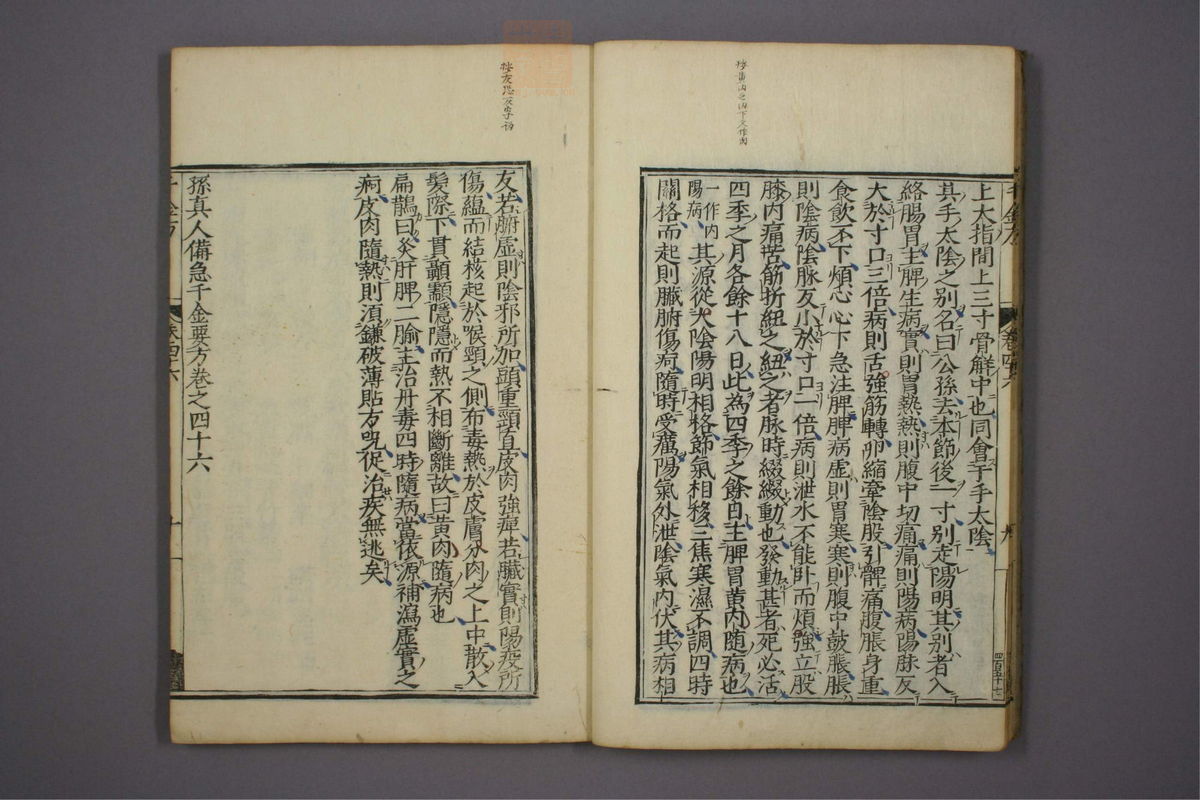 按黃內之內下文作肉
上大指間上三寸骨解中也同會于手太陰
其手太陰之別名曰公孫去本節後一寸別走陽明其別者入
絡腸胃主脾生病實則胃熱熱則腹中切痛痛則陽病陽脉反
大於寸口三倍病則舌強筋轉卵縮牽陰股引髀痛腹脹身重
食飲不下煩心心下急注脾脾病虛則胃寒寒則腹中鼓脹脹
則陰病陰脉反小於寸口一倍病則泄水不能臥而煩強立股
膝內痛苦筋折紐之紐之者脉時綴綴動也發動甚者死必活
四季之月各餘十八日此為四季之餘日主脾胃黃內隨病也
一作內
陽病
其源從太陰陽明相格節氣相移三焦寒濕不調四時
關格而起則臟腑傷疴隨時受癘陽氣外泄陰氣內伏其病相
卷四十六
九
四百五十七
按友恐反字訛
友若腑虛則陰邪所加頭重頸直皮肉強痺若臟實則陽疫所
傷蘊而結核起於喉頸之側布毒熱於皮膚分肉之上中散入
髮際下貫顳顬隱隱而熱不相斷離故曰黃肉隨病也
扁鵲曰灸肝脾二腧主治丹毒四時隨病當依源補瀉虛實之
疴皮肉隨熱則須鎌破薄貼方呪促治疾無逃矣
孫真人備急千金要方卷之四十六